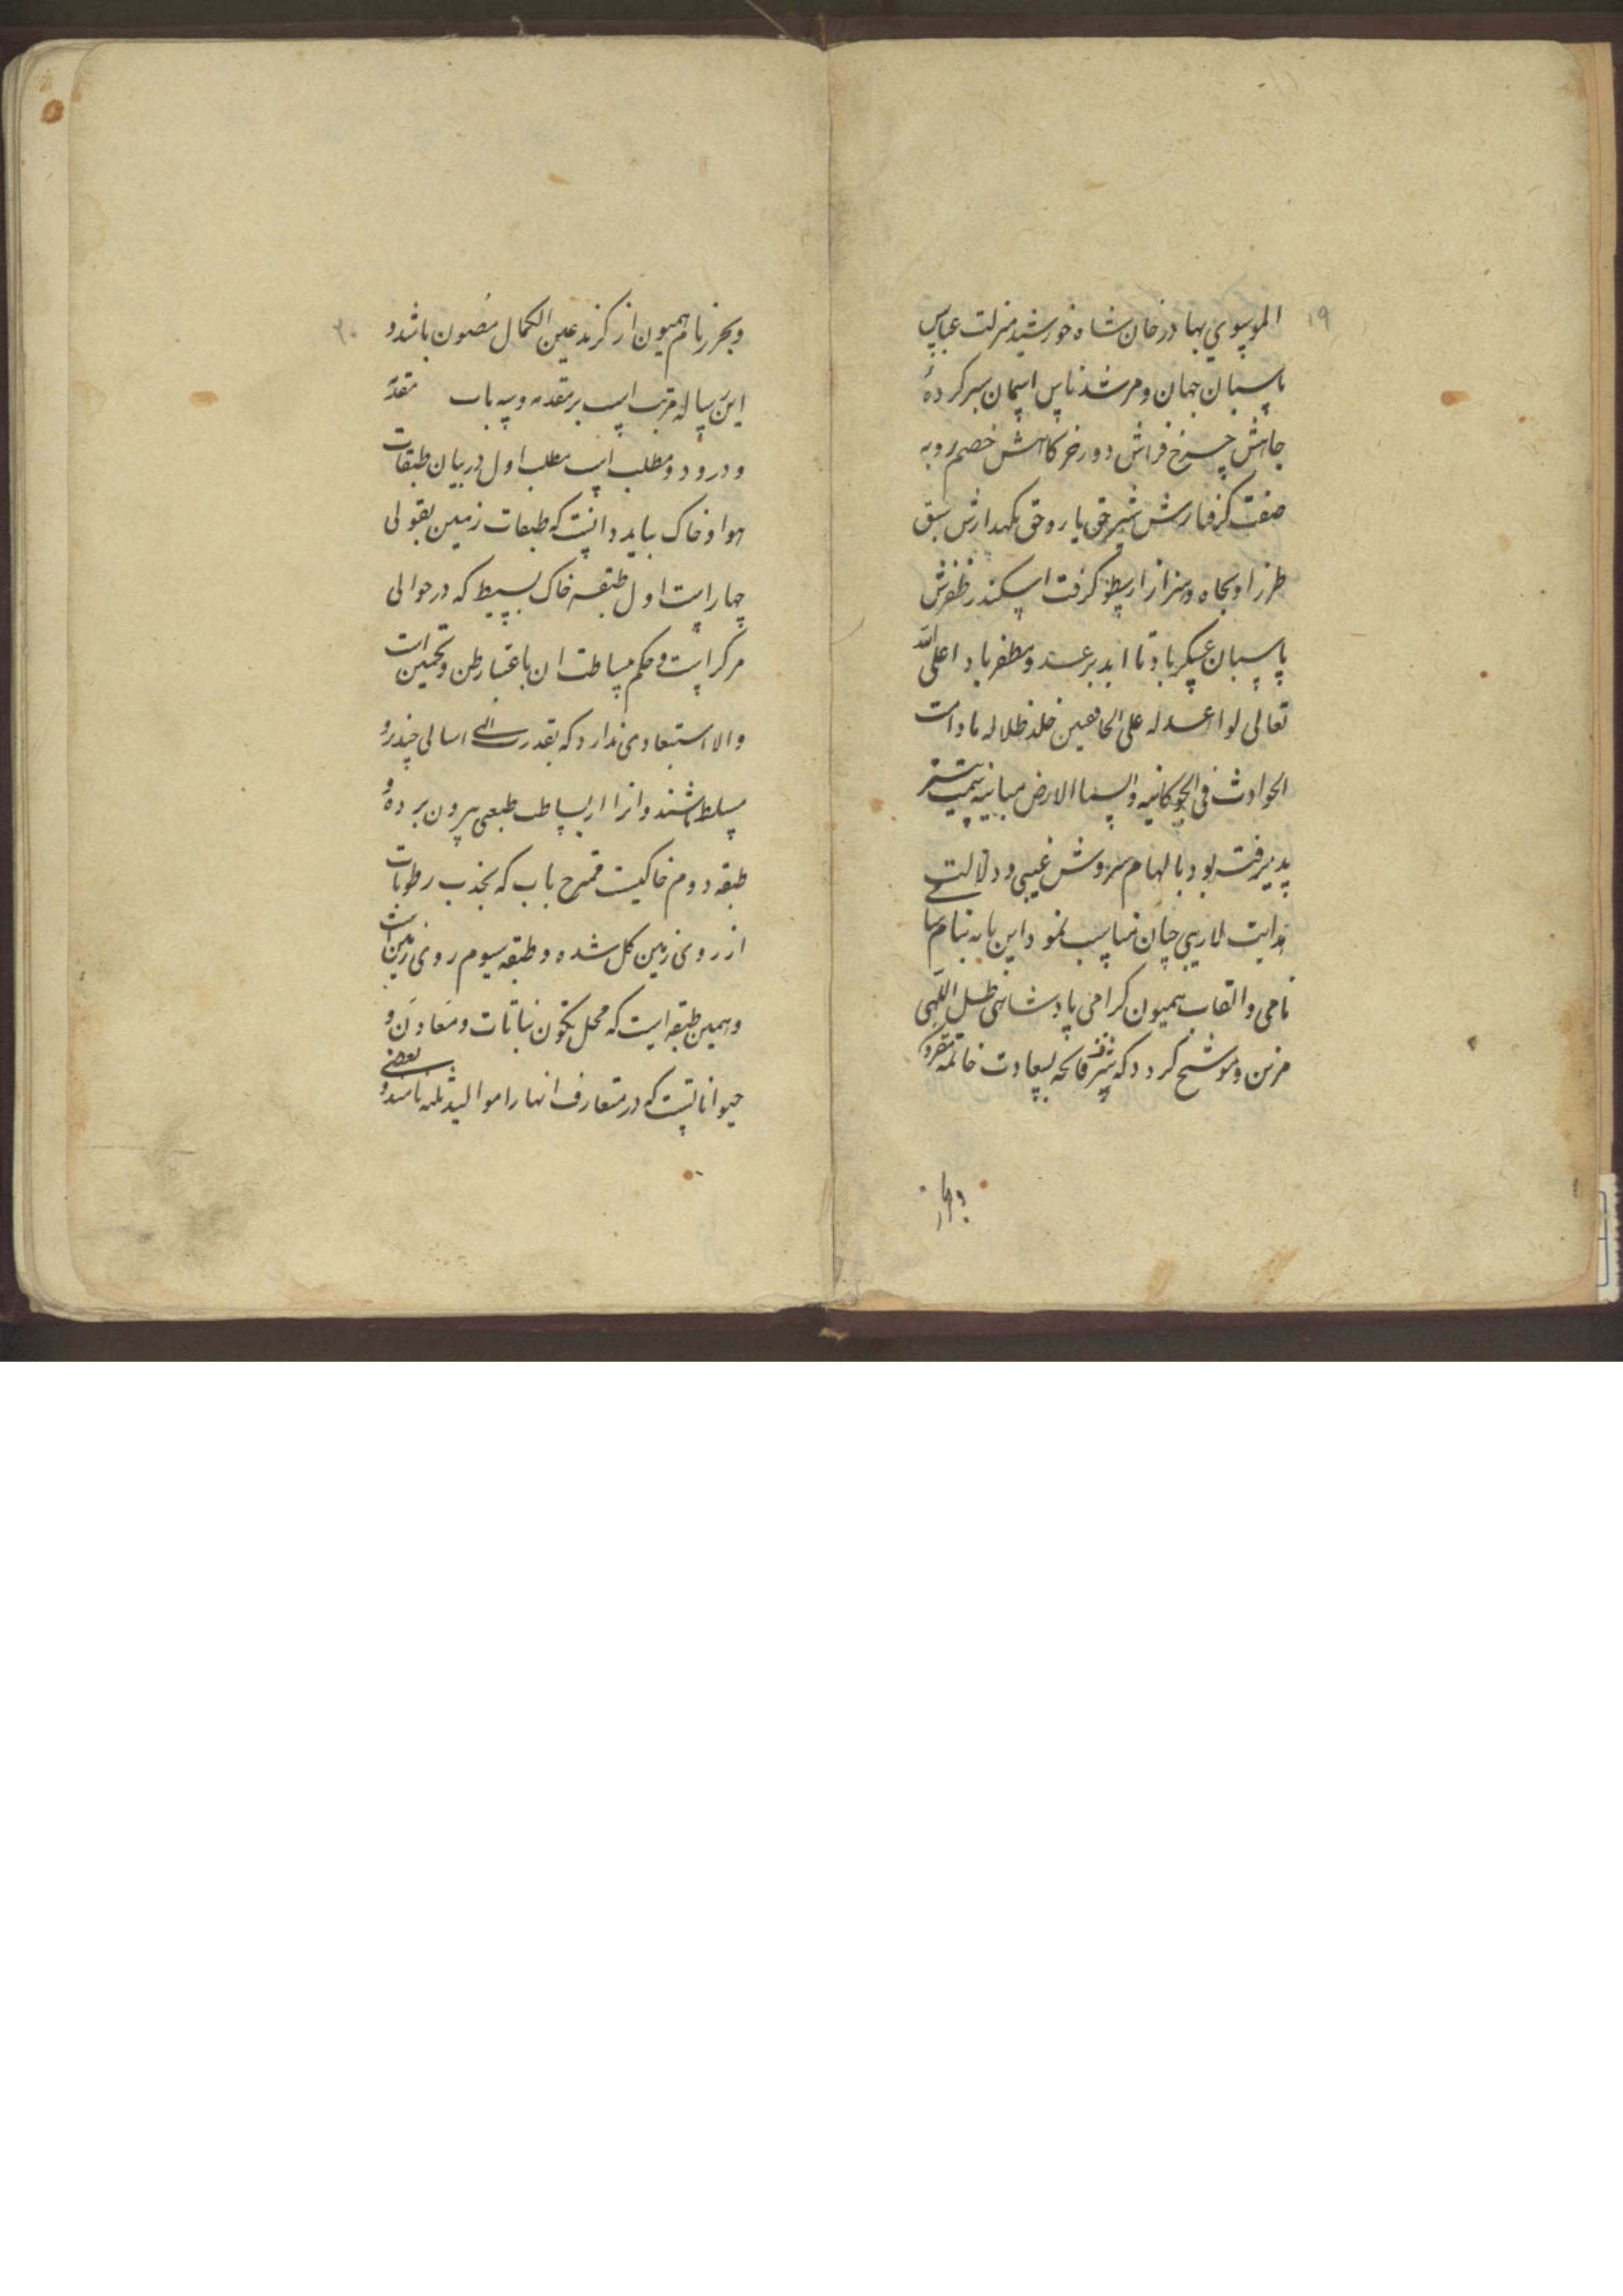 ۱۹
الموسوی بهادرخان شاه خورشید منزلت عباس
پاسبان جهان و مرشد ناس اسمان سر کرده
جاهش چرخ فراش دور خرکاهش خصم روبه
صفت کرفتارش شیر حق یار و حق نکهدارش سبق
طرز او بجاه و هنر از ارسطو کرفت اسکندر ظفرش
پاسبان عسکر باد تا ابد بر عدو مظفر باد اعلی الله
تعالی لوا عدله علی الخافقین خلد ظلاله مادامت
الحوادث فی الجو کائنیه والسما الارض مباینه سمت
پذیرفته بود بالهام سروش غیبی و دلالت
هدایت لاریبی چنان مناسب نمود این نامه بنام
نامی و القاب همیون کرامی پادشاهی ظل اللهی
مزین و موشح کردد که شرف فاتحه بسعادت خاتمه مقرون
وبحرز
۲۰
وبحرز نام همیون از کزند عین الکمال مصون باشد و
این رساله مرتب است بر مقدمه و سه باب مقدمه
و درو دو مطلب است مطلب اول در بیان طبقات
هوا و خاک باید دانست که طبقات زمین بقولی
چهار است اول طبقه خاک بسیط که در حوالی
مرکز است و حکم بساطت ان باعتبار ظن و تخمین است
والا استبعادی ندارد که بقدرت الهی اسالی چند رو
مسلط باشند و انرا از بساطت طبعی بیرون برده و
طبقه دوم خاکیست ممتزج باب که بجذب رطوبات
از روی زمین کل شده و طبقه سیوم روی زمین است
و همین طبقه است که محل تکون نباتات و معادن و
بعضی
حیواناتست که در متعارف انها را موالید ثلثه نامند و